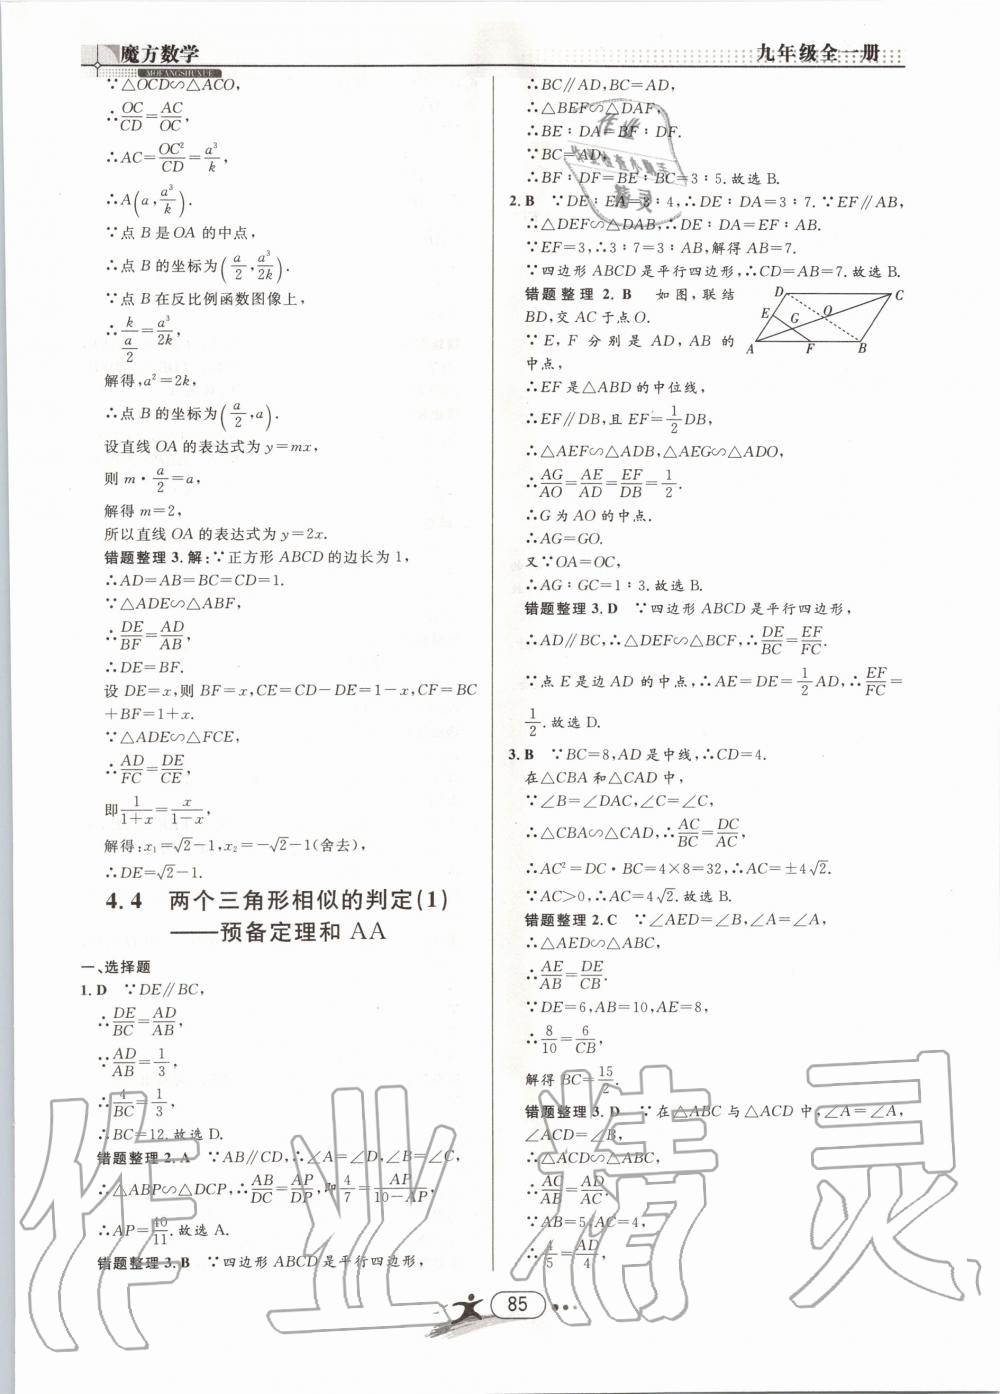 魔方数学
MOFANGSHUXUE
九年级全一册
∵△OCD∽△ACO,
∴OC/CD=AC/OC,
∴AC=OC²/CD=a³/k,
∴A(a,a³/k).
∵点 B 是 OA 的中点,
∴点 B 的坐标为(a/2,a³/2k).
∵点 B 在反比例函数图像上,
∴k/(a/2)=a³/2k,
解得,a²=2k,
∴点 B 的坐标为(a/2,a).
设直线 OA 的表达式为 y=mx,
则 m·a/2=a,
解得 m=2,
所以直线 OA 的表达式为 y=2x.
错题整理 3. 解:∵正方形 ABCD 的边长为 1,
∴AD=AB=BC=CD=1.
∵△ADE∽△ABF,
∴DE/BF=AD/AB,
∴DE=BF.
设 DE=x,则 BF=x,CE=CD-DE=1-x,CF=BC
+BF=1+x.
∵△ADE∽△FCE,
∴AD/FC=DE/CE,
即1/(1+x)=x/(1-x),
解得:x₁=√2-1,x₂=-√2-1(舍去),
∴DE=√2-1.
4.4 两个三角形相似的判定(1)
——预备定理和 AA
一、选择题
1. D ∵DE∥BC,
∴DE/BC=AD/AB,
∵AD/AB=1/3,
∴4/BC=1/3,
∴BC=12. 故选 D.
错题整理 2. A ∵AB∥CD,∴∠A=∠D,∠B=∠C,
∴△ABP∽△DCP,∴AB/DC=AP/DP,即4/7=AP/(10-AP),
∴AP=40/11. 故选 A.
错题整理 3. B ∵四边形 ABCD 是平行四边形,
∴BC∥AD,BC=AD,
∴△BEF∽△DAF,
∴BE∶DA=BF∶DF.
∵BC=AD,
∴BF∶DF=BE∶BC=3∶5. 故选 B.
2. B ∵DE∶EA=3∶4,∴DE∶DA=3∶7. ∵EF∥AB,
∴△DEF∽△DAB,∴DE∶DA=EF∶AB.
∵EF=3,∴3∶7=3∶AB,解得 AB=7.
∵四边形 ABCD 是平行四边形,∴CD=AB=7. 故选 B.
错题整理 2. B 如图,联结
BD,交 AC 于点 O.
∵E,F 分别是 AD,AB 的
中点,
D
C
E
G
O
A
F
B
∴EF 是△ABD 的中位线,
∴EF∥DB,且 EF=1/2DB,
∴△AEF∽△ADB,△AEG∽△ADO,
∴AG/AO=AE/AD=EF/DB=1/2.
∴G 为 AO 的中点.
∴AG=GO.
又∵OA=OC,
∴AG∶GC=1∶3. 故选 B.
错题整理 3. D ∵四边形 ABCD 是平行四边形,
∴AD∥BC,∴△DEF∽△BCF,∴DE/BC=EF/FC.
∵点 E 是边 AD 的中点,∴AE=DE=1/2AD,∴EF/FC=
1/2. 故选 D.
3. B ∵BC=8,AD 是中线,∴CD=4.
在△CBA 和△CAD 中,
∵∠B=∠DAC,∠C=∠C,
∴△CBA∽△CAD,∴AC/BC=DC/AC,
∴AC²=DC·BC=4×8=32,∴AC=±4√2.
∵AC>0,∴AC=4√2. 故选 B.
错题整理 2. C ∵∠AED=∠B,∠A=∠A,
∴△AED∽△ABC,
∴AE/AB=DE/CB.
∵DE=6,AB=10,AE=8,
∴8/10=6/CB,
解得 BC=15/2.
错题整理 3. D ∵在△ABC 与△ACD 中,∠A=∠A,
∠ACD=∠B,
∴△ACD∽△ABC,
∴AC/AB=AD/AC.
∵AB=5,AC=4,
∴4/5=AD/4,
85
作业精灵